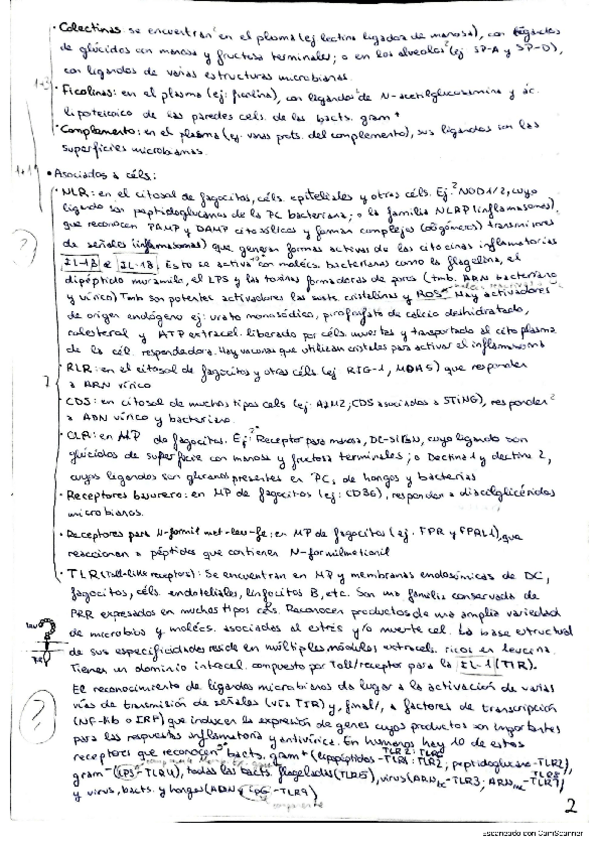 · Colectinas: se encuentran en el plasma (ej lectina ligadora de manosa), con ligandos
de glúcidos con manosa y fructosa terminales; o en los alveolos (ej: SP-A y SP-D),
con ligandos de varias estructuras microbianas.
· Ficolinas: en el plasma (ej: ficolina), con ligandos de N-acetilglucosamina y ác.
lipoteicoico de las paredes cels. de las bacts. gram+
· Complemento: en el plasma (ej: varias prots. del complemento), sus ligandos son las
superficies microbianas.
• Asociados a céls:
· NLR: en el citosol de fagocitos, céls. epiteliales y otras céls. Ej: NOD1/2, cuyo
ligando son peptidoglucanos de la PC bacteriana; o la familia NLRP (inflamasomas),
que reconocen PAMP y DAMP citosólicos y forman complejos (oligómeros) transmisores
de señales (inflamasomas) que generan formas activas de las citocinas inflamatorias
IL-1β e IL-18. Esto se activa con molécs. bacterianas como la flagelina, el
dipéptido muramilo, el LPS y las toxinas formadoras de poros (tmb. ARN bacteriano
y vírico) Tmb son potentes activadores las susts. cristalinas y ROS. Hay activadores
de origen endógeno ej: urato monosódico, pirofosfato de calcio deshidratado,
colesterol y ATP extracel. liberado por céls. muertas y transportado al citoplasma
de la cél. respondedora. Hay vacunas que utilizan cristales para activar el inflamasoma
· RLR: en el citosol de fagocitos y otras céls (ej: RIG-1, MDA5) que responden
a ARN vírico
· CDS: en citosol de muchos tipos cels (ej: AIM2; CDS asociados a STING), responden
a ADN vírico y bacteriano.
· CLR: en MP de fagocitos. Ej: Receptor para manosa, DC-SIGN, cuyo ligando son
glúcidos de superficie con manosa y fructosa terminales; o Dectina 1 y dectina 2,
cuyos ligandos son glucanos presentes en PC, de hongos y bacterias
· Receptores basurero: en MP de fagocitos (ej: CD36), responden a diacilglicéridos
microbianos.
· Receptores para N-formil met-leu-fe: en MP de fagocitos (ej. FPR y FPRL1), que
reaccionan a péptidos que contienen N-formilmetionil
· TLR (Toll-like receptors): Se encuentran en MP y membranas endosómicas de DC,
fagocitos, céls. endoteliales, linfocitos B, etc. Son una familia conservada de
PRR expresados en muchos tipos céls. Reconocen productos de una amplia variedad
de microbios y molécs. asociadas al estrés y/o muerte cel. La base estructural
de sus especificidades reside en múltiples módulos extracel. ricos en leucina.
Tienen un dominio intracel. compuesto por Toll/receptor para la IL-1 (TIR).
El reconocimiento de ligandos microbianos da lugar a la activación de varias
vías de transmisión de señales (vía TIR) y, final/, a factores de transcripción
(NF-κb o IRF) que inducen la expresión de genes cuyos productos son importantes
para las respuestas inflamatoria y antivírica. En humanos hay 10 de estos
receptores que reconocen bacts. gram+ (lipopéptidos-TLR1:TLR2; peptidoglucano-TLR2),
gram- (LPS-TLR4), todas las bacts. flageladas (TLR5), virus (ARN-TLR3; ARN-TLR7)
y virus, bacts. y hongos (ADN CpG-TLR9)
2
Escaneado con CamScanner